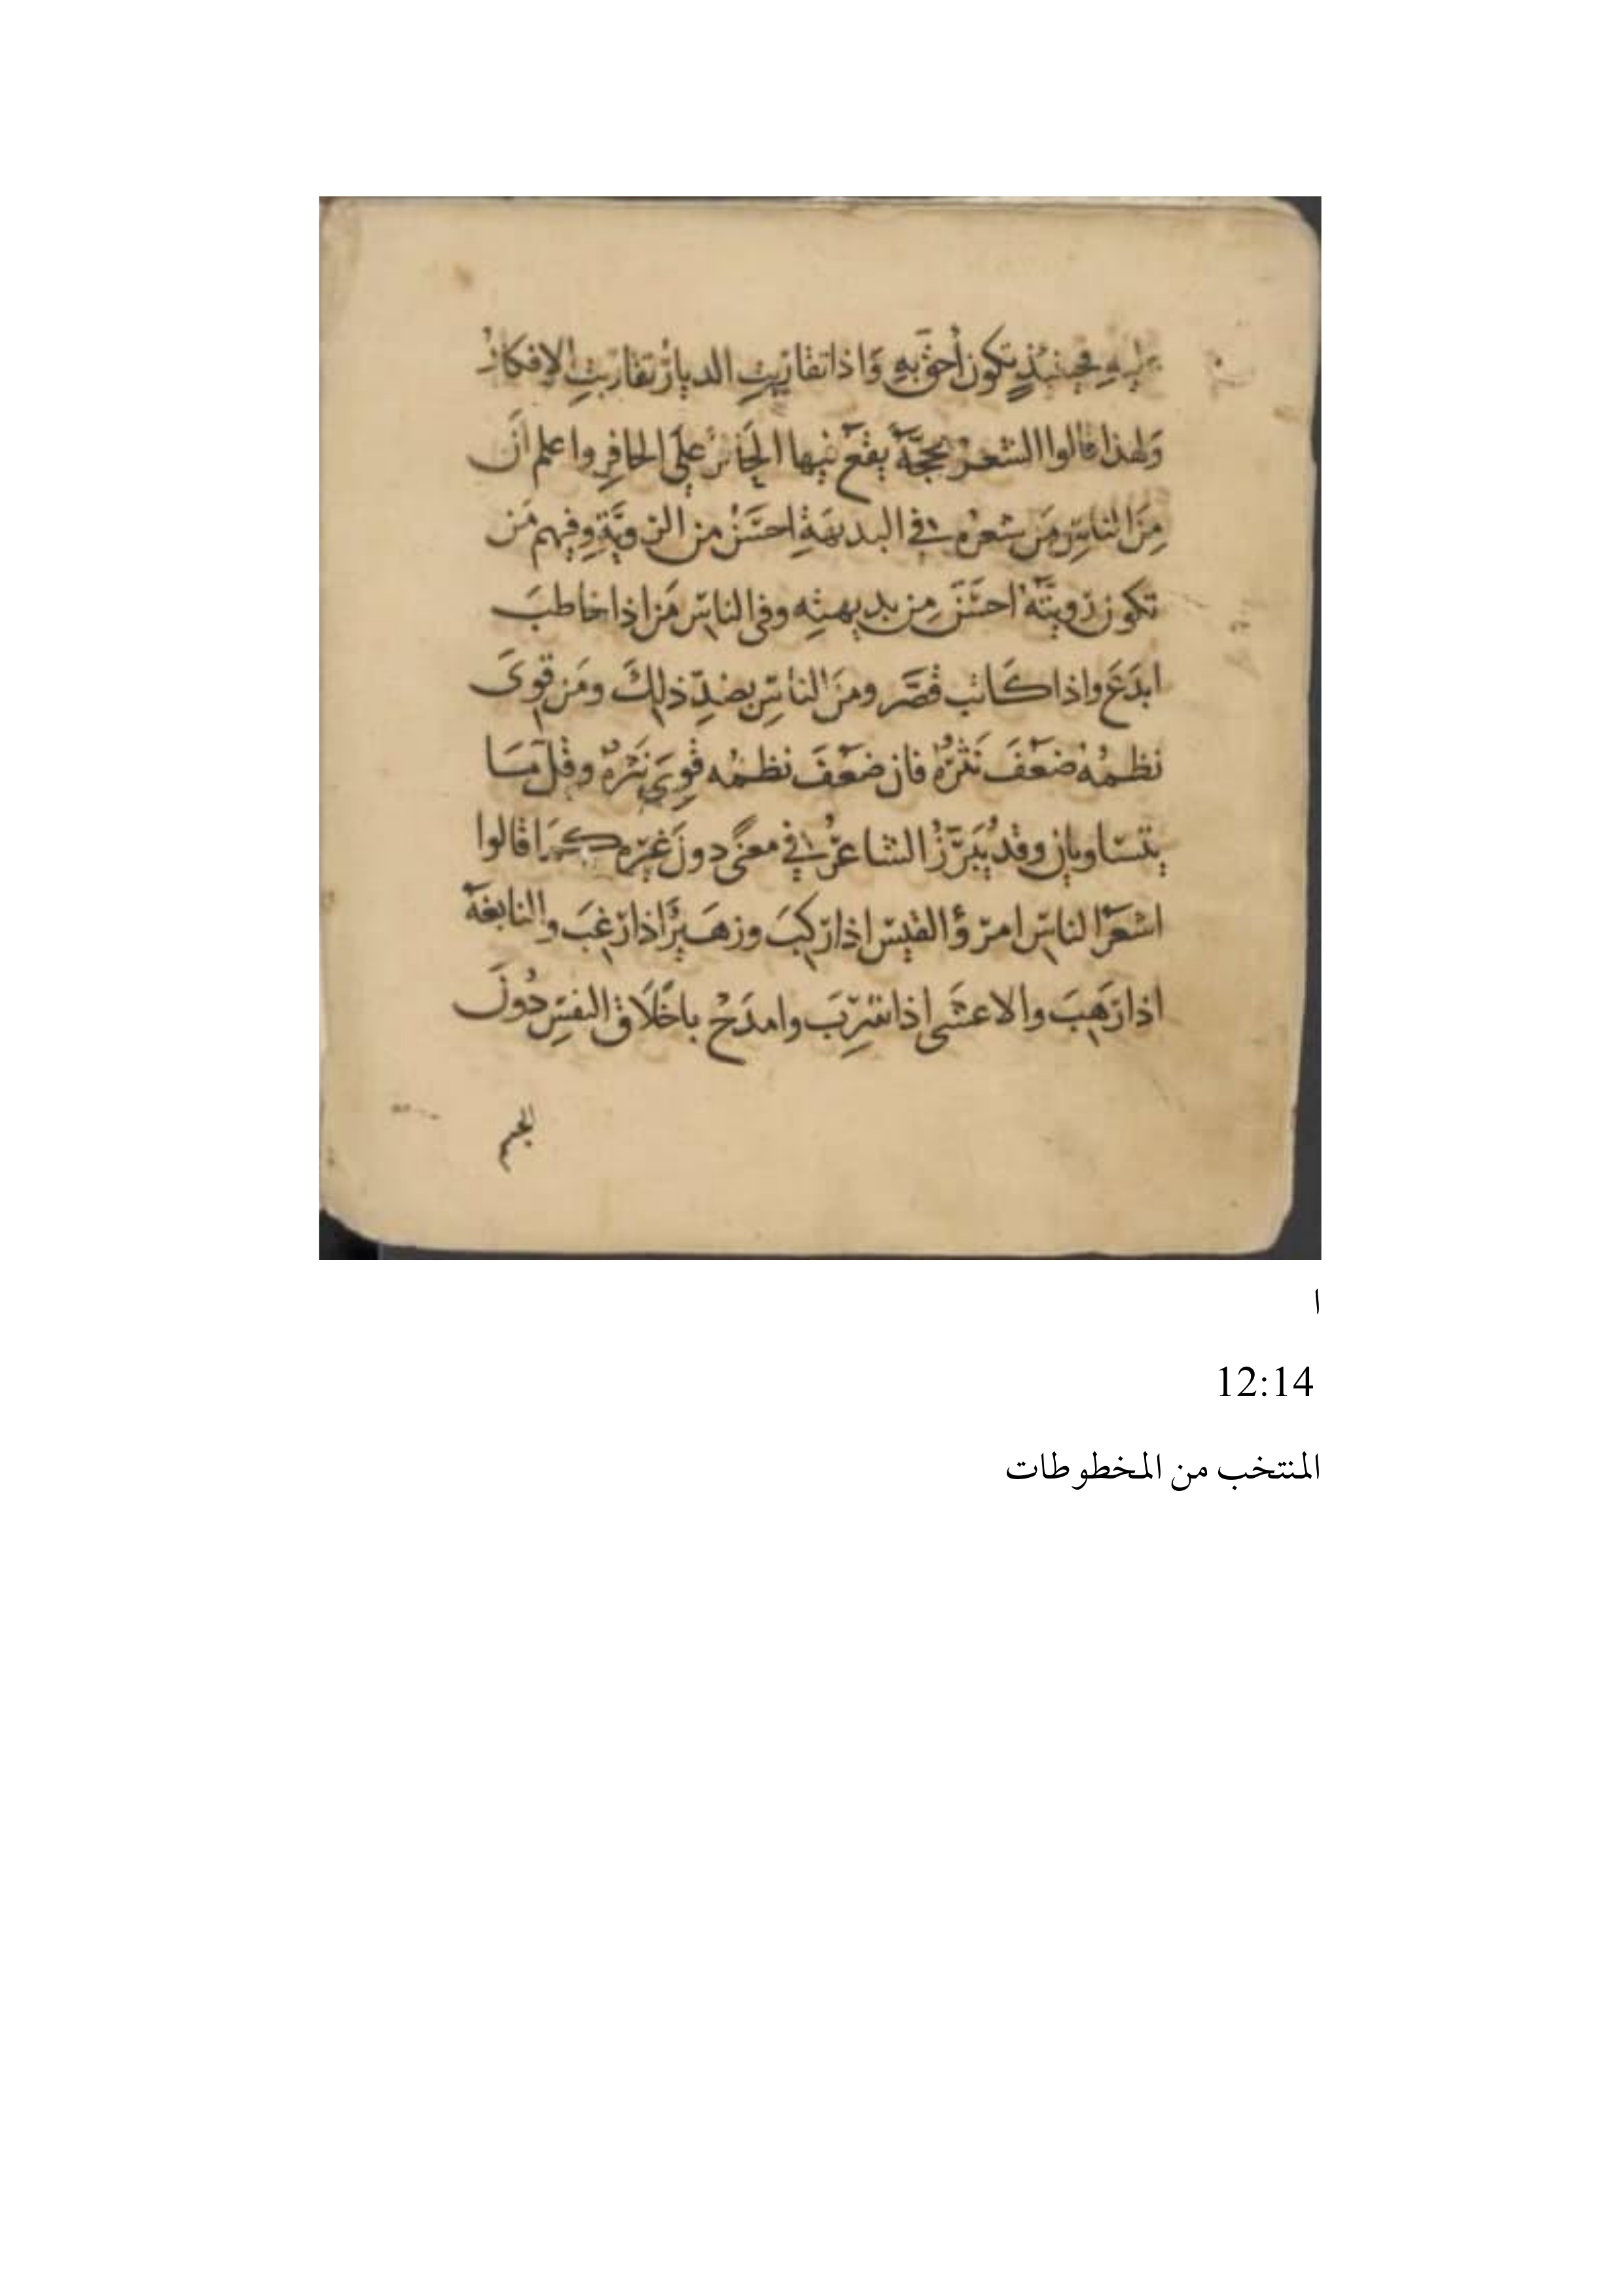 عليهِ فحينئذٍ تكون أحقّ بهِ وَاذا تقاربتِ الديارُ تقاربتِ الافكارُ
وَلهذا قالوا الشعرُ محجّةٌ يقع فيها الحَافرُ علَى الحافِرِ واعلم أنَ
مِنَ الناسِ مَن شعرُه في البديهَةِ احسَنُ من الرّويَّةِ وفيهم مَن
تكون رويّتُه احسَنَ مِن بديهتِه وفى الناسِ مَن اذا خاطبَ
ابدَعَ واذا كاتب قصَّر ومنَ الناسِ بضدِّ ذلِكَ ومَن قوىَ
نظمُه ضعَفَ نَثرُهُ فان ضعَفَ نظمُه قوِيَ نَثرُهُ وقلَّ مَا
يتسَاويان وقد يُبَرّزُ الشاعرُ في معنًى دونَ غيرِه كمَا قالوا
اشعَرُ الناسِ امرؤ القيسِ اذا ركبَ وزهَيرٌ اذا رَغبَ والنابغَة
اذا رَهبَ والاعشَى اذا شرِبَ وامدَحْ باخلَاق النفسِ دُونَ
الجسم
ا
12:14
المنتخب من المخطوطات